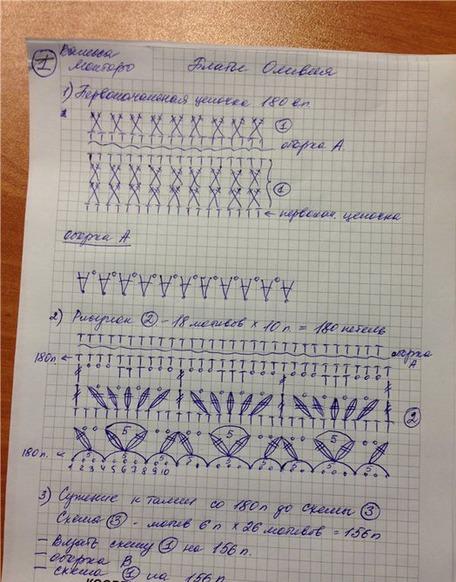 ① Ванесса
Монторо
Платье Оливия
1) Первоначальная цепочка 180 вп.
①
оборка А
①
← первонач. цепочка
оборка А
2) Рисунок ② - 18 мотивов × 10 п. = 180 петель
180п. ←
оборка
А
②
5 5 5
180п. ←
5 5 5 5 5
1 2 3 4 5 6 7 8 9 10
3) Сужение к талии со 180п до схемы ③
Схема ③ - мотив 6 п × 26 мотивов = 156п
- Вязать схему ① на 156 п.
- оборка В
- схема ① на 156 п.